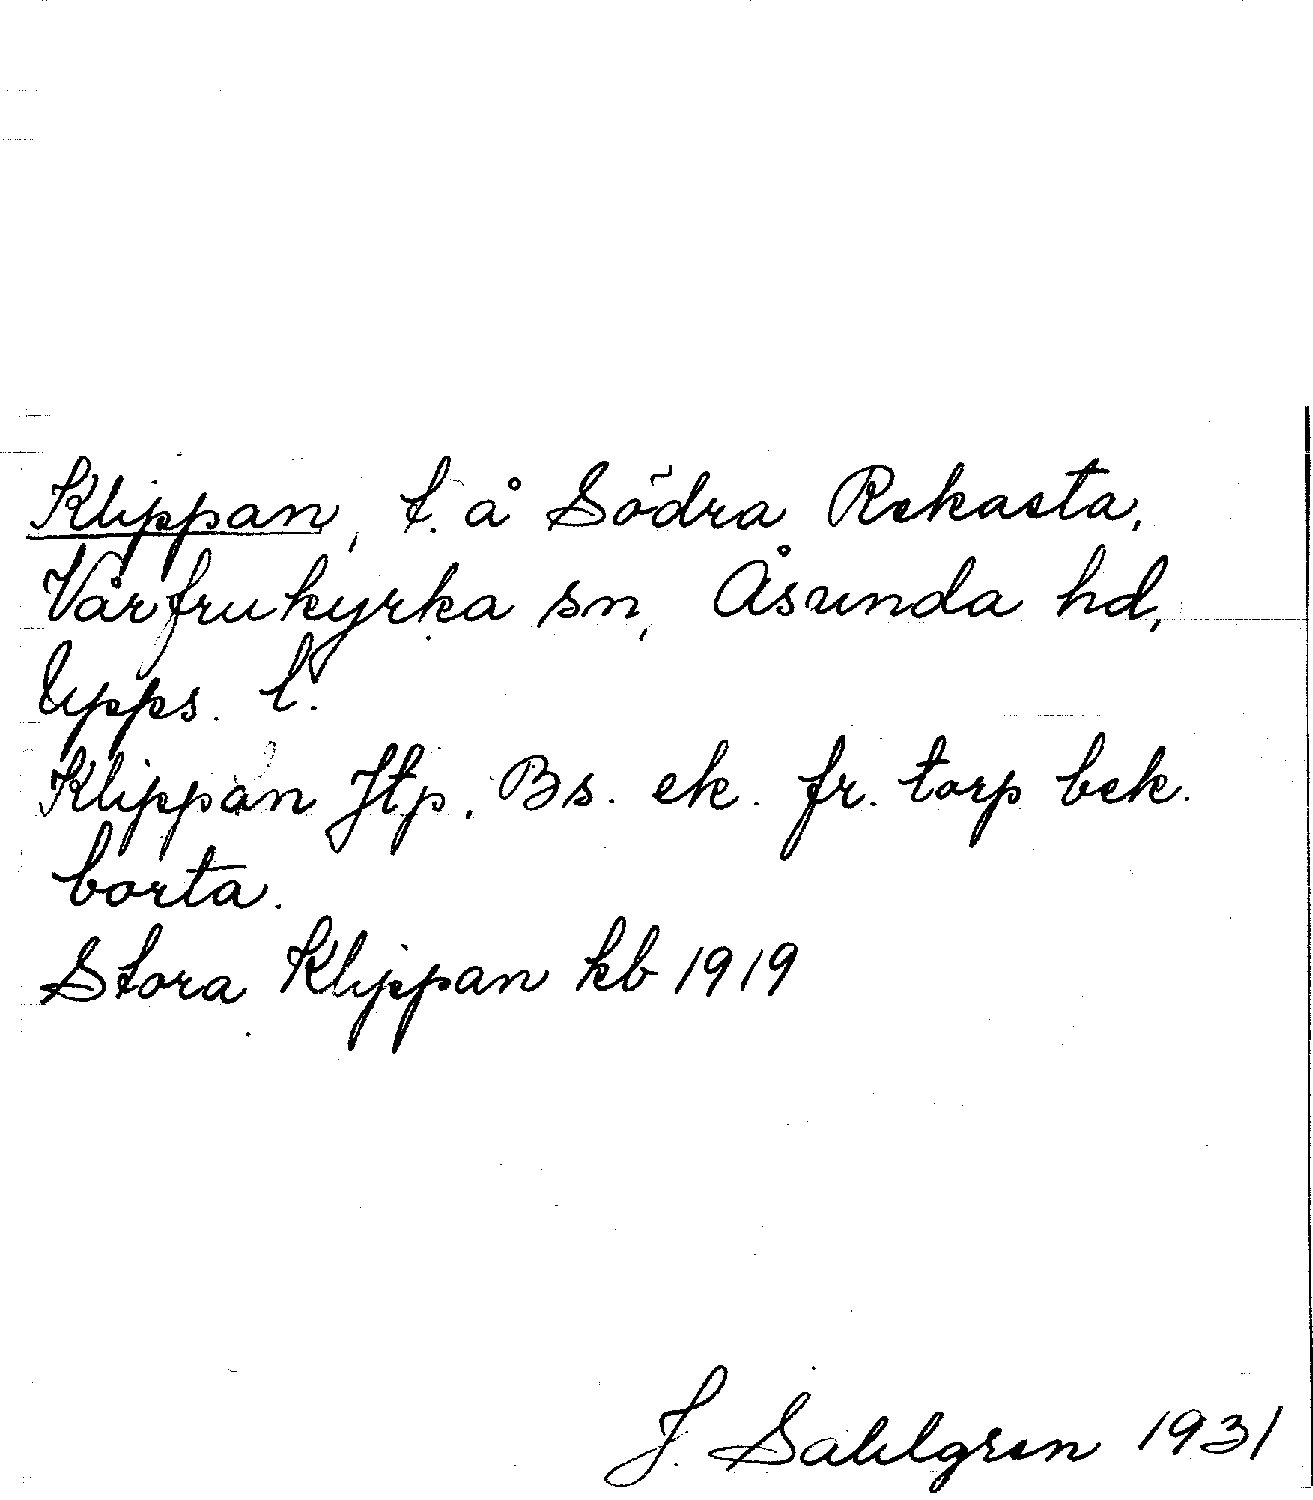 Klippan, t. å Södra Rekasta,
Vårfrukyrka sn, Åsunda hd,
Upps. l.
Klippan Jtp. Bs. ek. fr. torp bek.
borta.
Stora Klippan kb 1919
J. Sahlgren 1931